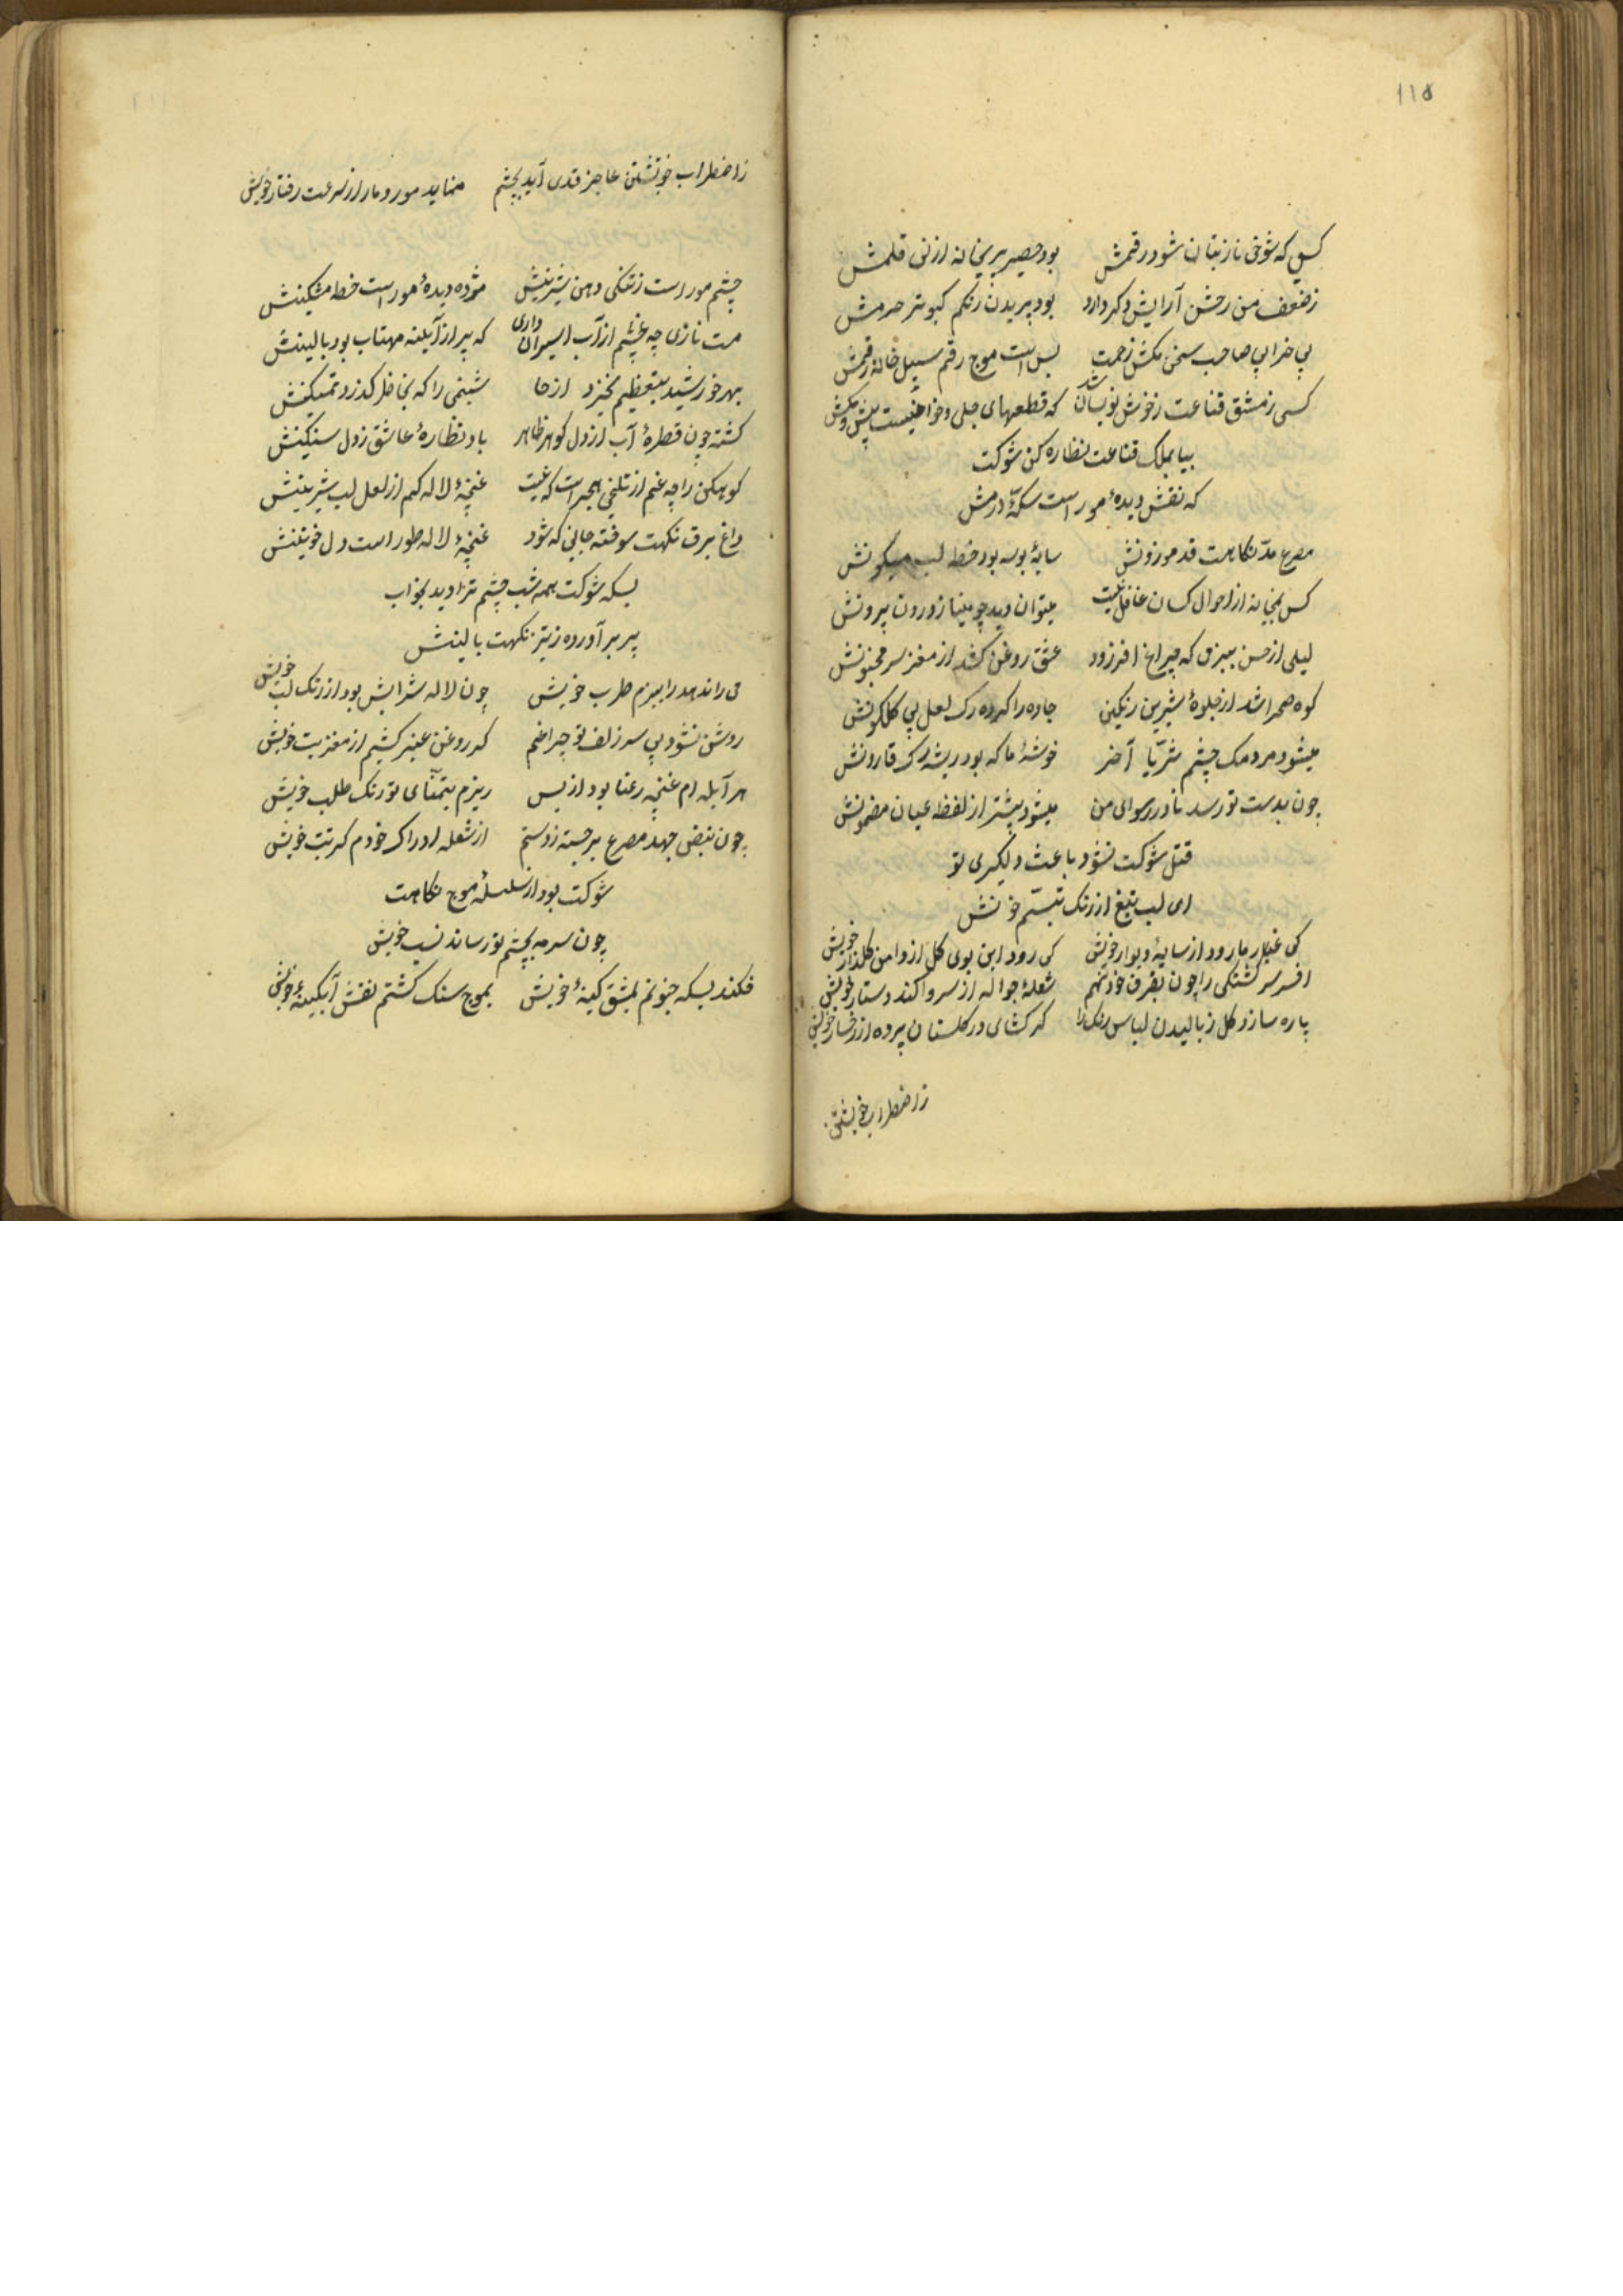 ۱۱۵
کسی که شوخی ناز بتان شود رقمش بود حصیر پریخانه از نی قلمش
ز ضعف من رخش آرایش دکر دارد بود پریدن رنکم کبوتر حرمش
پی خرابی صاحب سخن مکش زحمت بس است موج رقم سیل خانه رقمش
کسی ز مشق قناعت ز خوش نویسان شد که قطعهای جلی و خفی است بیش و کمش
بیا بملک قناعت نظاره کن شوکت
که نقش دیدهٔ مور است سکّهٔ درمش
مصرع مدّ نکاهست قد موزونش سایهٔ بوسه بود خط لب میکونش
کس بمیخانه از احوال کسان غافل نیست میتوان دید چو مینا ز درون بیرونش
لیلی از حسن ببزمی که چراغ افروزد عشق روغن کشد از مغز سر مجنونش
کوه صحرا شد از جلوهٔ شیرین رنکین جاده را کرده رک لعل پی کلکونش
میشود مردمک چشم ثریّا آخر خوشهٔ ما که بود ریشه رک قارونش
چون بدست تو رسد نامهٔ رسوای من میشود بیشتر از لفظ عیان مضمونش
قتل شوکت نشود باعث دلکیری تو
ای لب تیغ از رنک تبسّم خونش
کی غبار ما رود از سایهٔ دیوار خویش کی رود این بوی کل از دامن کلزار خویش
افسر سرکشتکی را چون بفرق خود نهم شعلهٔ جواله از سر واکند دستار خویش
پاره سازد کل ز بالیدن لباس رنک را کر کشای در کلستان پرده از رخسار خویش
ز اضطراب خویشتن
ز اضطراب خویشتن عاجز قدی آید بچشم مینماید مور و مار از سرعت رفتار خویش
چشم مور است ز تنکی دهن شیرینش مژده دیدهٔ مور است خط مشکینش
مست نازی چه غم از چشم پر آب اسیران داری که پر از آینه مهتاب بود بالینش
بهر خورشید بتعظیم نخیزد از جا شبنمی را که بخاطر کذرد تمکینش
کشته چون قطرهٔ آب از دل کوهر ظاهر باد نظارهٔ عاشق ز دل سنکینش
کوهکن را چه غم از تلخی هجر است که نیست غنچهٔ لاله کم از لعل لب شیرینش
داغ برق نکهت سوخته جانی که شود غنچهٔ لاله طور است دل خونینش
بسکه شوکت همه شب چشم ترا دید بخواب
پر برآورده ز تیر نکهت بالینش
می راند هد را ببزم طرب خویش چون لاله شرابش بود از رنک لب خویش
روشن نشود بی سر زلف تو چراغم کر روغن عنبر کشیم از مغز شب خویش
هر آبله ام غنچه رعنا بود از بس ریزم بتمنّای تو رنک طلب خویش
چون نبض جهد مصرع برجسته ز دستم از شعله ادراک خودم کرم تب خویش
شوکت بود از سلسلهٔ موج نکاهت
چون سرمه بچشم تو رساند نسب خویش
فکند بسکه جنونم بمشق کینهٔ خویش بموج سنک کشتم نقش آبکینهٔ خویش